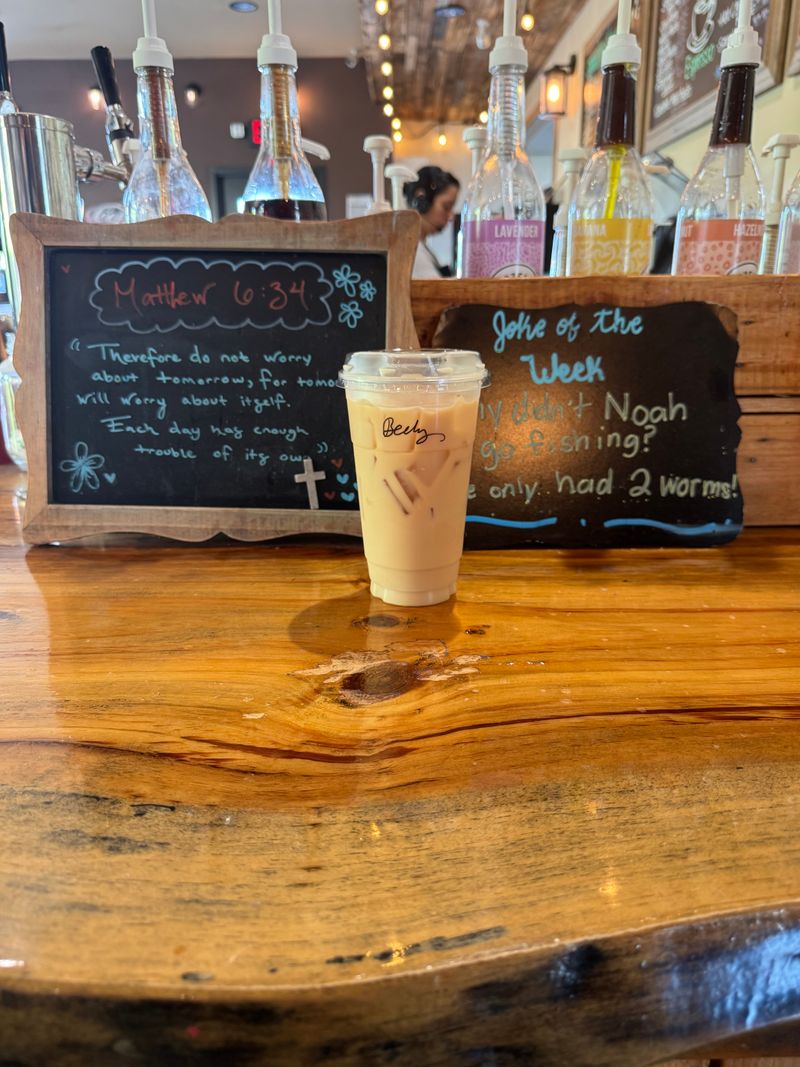 Matthew 6:34
"Therefore do not worry
about tomorrow, for tomo
will worry about itself.
Each day has enough
trouble of its ow "
Becky
Joke of the
Week
y didn't Noah
go fishing?
e only had 2 worms!
LAVENDER
ANANA
UT
HAZELN
Espresso